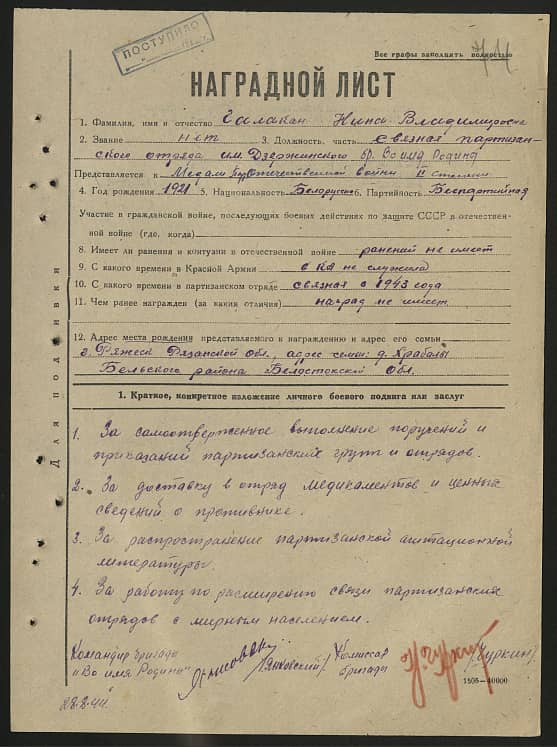 ПОСТУПИЛО
Все графы заполнять полностью
НАГРАДНОЙ ЛИСТ
1. Фамилия, имя и отчество Галакан Нина Владимировна
2. Звание нет 3. Должность, часть связная партизан-
ского отряда им. Дзержинского бр. Во имя Родины
Представляется к Медали Отечественной войны II степени
4. Год рождения 1921 5. Национальность Белоруска 6. Партийность Беспартийная
Участие в гражданской войне, последующих боевых действиях по защите СССР в отечествен-
ной войне (где, когда)
8. Имеет ли ранения и контузии в отечественной войне ранений не имеет
9. С какого времени в Красной Армии в КА не служила
10. С какого времени в партизанском отряде связная с 1943 года
11. Чем ранее награжден (за какие отличия) наград не имеет
12. Адрес места рождения представляемого к награждению и адрес его семьи
г. Ряжск Рязанской обл., адрес семьи: д. Храбалы
Бельского района Белостокской обл.
Для подшивки
1. Краткое, конкретное изложение личного боевого подвига или заслуг
1. За самоотверженное выполнение поручений и
приказаний партизанских групп и отрядов.
2. За доставку в отряд медикаментов и ценных
сведений о противнике.
3. За распространение партизанской агитационной
литературы.
4. За работу по расширению связи партизанских
отрядов с мирным населением.
Командир бригады Комиссар
"Во имя Родины" /Янковский/ бригады /Чуркин/
28.8.44г.